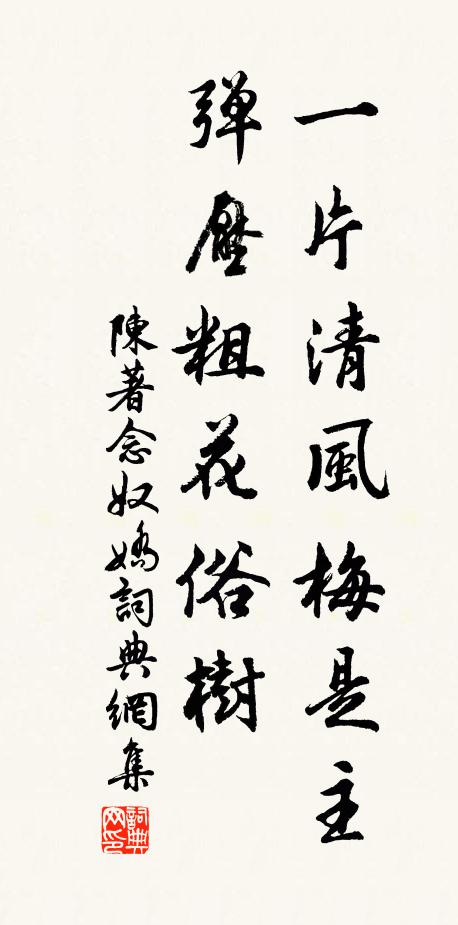 一片清風梅是主
彈壓粗花俗樹
陳著念奴嬌詞典網集
詞典网印